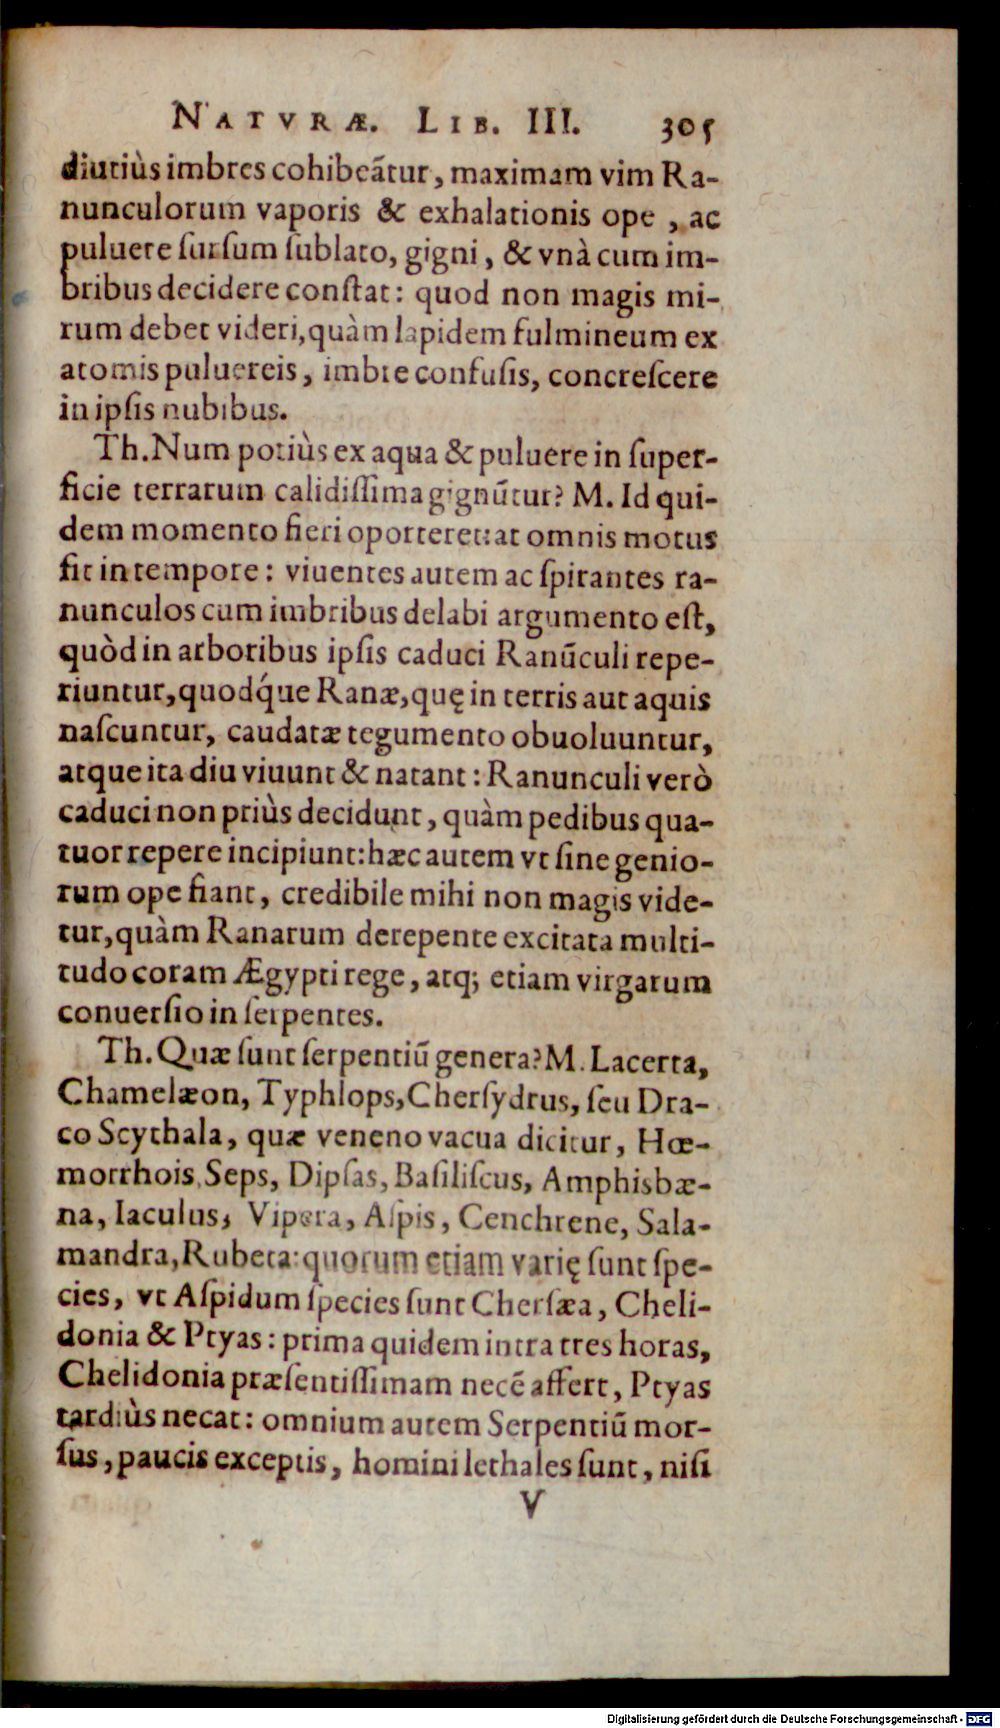 NATVRÆ. LIB. III. 305
diutiùs imbres cohibeãtur, maximam vim Ra-
nunculorum vaporis & exhalationis ope, ac
puluere sursum sublato, gigni, & vnà cum im-
bribus decidere constat: quod non magis mi-
rum debet videri, quàm lapidem fulmineum ex
atomis puluereis, imbre confusis, concrescere
in ipsis nubibus.
Th. Num potiùs ex aqua & puluere in super-
ficie terrarum calidissima gignũtur? M. Id qui-
dem momento fieri oporteret: at omnis motus
fit in tempore: viuentes autem ac spirantes ra-
nunculos cum imbribus delabi argumento est,
quòd in arboribus ipsis caduci Ranũculi repe-
riuntur, quodq́ue Ranæ, quę in terris aut aquis
nascuntur, caudatæ tegumento obuoluuntur,
atque ita diu viuunt & natant: Ranunculi verò
caduci non priùs decidunt, quàm pedibus qua-
tuor repere incipiunt: hæc autem vt sine genio-
rum ope fiant, credibile mihi non magis vide-
tur, quàm Ranarum derepente excitata multi-
tudo coram Ægypti rege, atq; etiam virgarum
conuersio in serpentes.
Th. Quæ sunt serpentiũ genera? M. Lacerta,
Chamelæon, Typhlops, Chersydrus, seu Dra-
co Scythala, quæ veneno vacua dicitur, Hœ-
morrhois, Seps, Dipsas, Basiliscus, Amphisbæ-
na, Iaculus, Vipera, Aspis, Cenchrene, Sala-
mandra, Rubeta: quorum etiam varię sunt spe-
cies, vt Aspidum species sunt Chersæa, Cheli-
donia & Ptyas: prima quidem intra tres horas,
Chelidonia præsentissimam necẽ affert, Ptyas
tardiùs necat: omnium autem Serpentiũ mor-
sus, paucis exceptis, homini lethales sunt, nisi
V
Digitalisierung gefördert durch die Deutsche Forschungsgemeinschaft - DFG